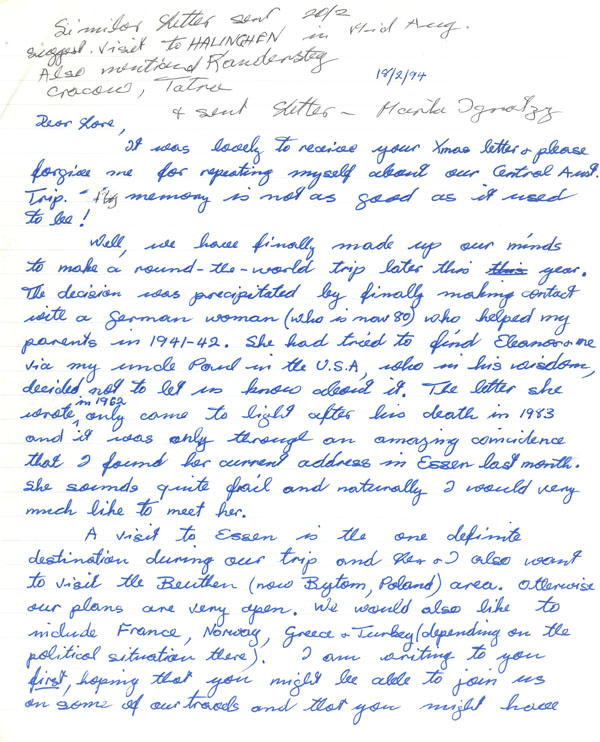 Similar letter sent 20/2
suggest. visit to HALINGHEN in Mid Aug.
Also mentioned Kandersteg
Cracow, Tatra
18/2/94
& sent letter – Marita
Dear Lore,
It was lovely to receive your Xmas letter & please
forgive me for repeating myself about our Central Aust.
Trip. – My memory is not as good as it used
to be!
Well, we have finally made up our minds
to make a round-the-world trip later this this year.
The decision was precipitated by finally making contact
with a German woman (who is now 80) who helped my
parents in 1941-42. She had tried to find Eleanor & me
via my uncle Paul in the U.S.A, who in his wisdom,
decided not to let us know about it. The letter she
wrote in 1962 only came to light after his death in 1983
and it was only through an amazing coincidence
that I found her current address in Essen last month.
She sounds quite frail and naturally I would very
much like to meet her.
A visit to Essen is the one definite
destination during our trip and & I also want
to visit the Beuthen (now Bytom, Poland) area. Otherwise
our plans are very open. We would also like to
include France, Norway, Greece & Turkey (depending on the
political situation there). I am writing to you
first, hoping that you might be able to join us
on some of our travels and that you might have